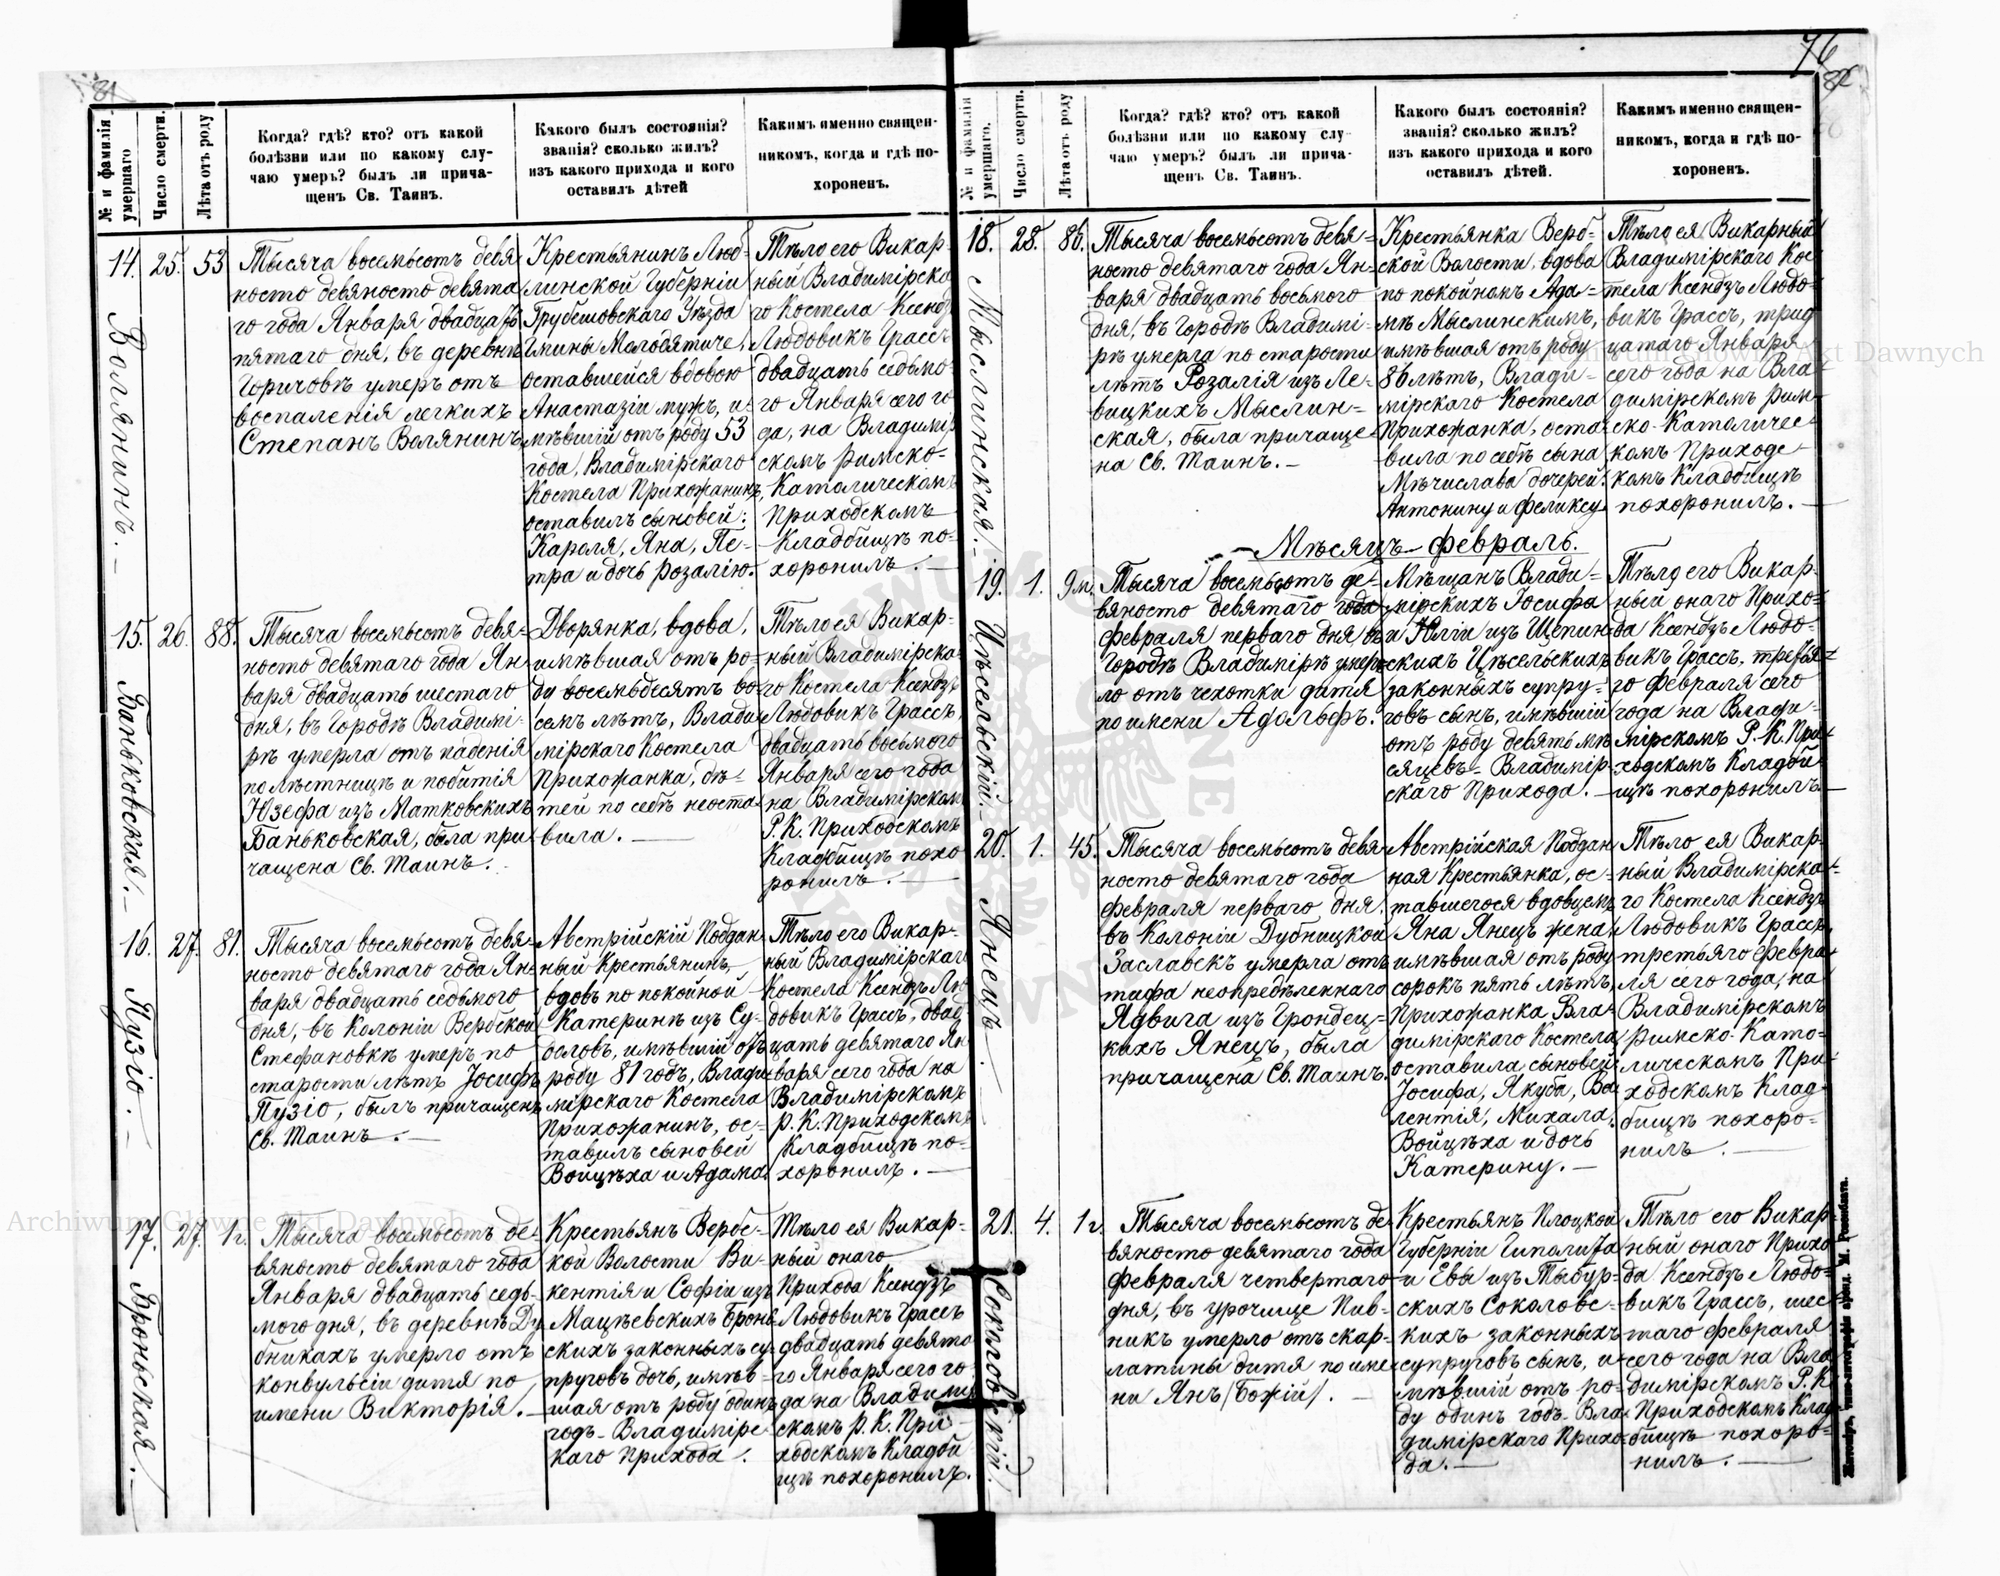 81
№ и фамилія умершаго.
Число смерти.
Лѣта отъ роду
Когда? гдѣ? кто? отъ какой
болѣзни или по какому слу-
чаю умеръ? былъ ли прича-
щенъ Св. Таинъ.
Какого былъ состоянія?
званія? сколько жилъ?
изъ какого прихода и кого
оставилъ дѣтей
Какимъ именно священ-
никомъ, когда и гдѣ по-
хороненъ.
14. Волянинъ.
25.
53
Тысяча восемьсотъ девя
носто девяносто девята
го года Января двадцать
пятаго дня, въ деревнѣ
Горичовѣ умеръ отъ
воспаленія легкихъ
Степанъ Волянинъ
Крестьянинъ Люб-
линской Губерніи
Грубешовскаго Уѣзда
Гмины Молодятиче,
оставшейся вдовою
Анастазіи мужъ, и-
мѣвшій отъ роду 53
года, Владимірскаго
Костела Прихожанинъ,
оставилъ сыновей:
Кароля, Яна, Пе-
тра и дочь Розалію.
Тѣло его Викар-
ный Владимірска
го Костела Ксендзъ
Людовикъ Грассъ
двадцать седьмо-
го Января сего го
да, на Владимір
скомъ Римско-
Католическомъ
Приходскомъ
Кладбищѣ по-
хоронилъ.
15. Баньковская.
26.
88.
Тысяча восемьсотъ девя-
носто девятаго года Ян
варя двадцать шестаго
дня, въ Городѣ Владимі-
рѣ умерла отъ паденія
по лѣстницѣ и побитія
Юзефа изъ Матковскихъ
Баньковская, была при
чащена Св. Таинъ.
Дворянка, вдова,
имѣвшая отъ ро-
ду восемьдесятъ во-
семъ лѣтъ, Влади
мірскаго Костела
Прихожанка, дѣ-
тей по себѣ неоста
вила.
Тѣло ея Викар-
ный Владимірска-
го Костела Ксендзъ
Людовикъ Грассъ,
двадцать восьмого
Января сего года
на Владимірском
Р. К. Приходскомъ
Кладбищѣ похо
ронилъ.
16. Пузіо.
27.
81.
Тысяча восемьсотъ девя-
носто девятаго года Ян-
варя двадцать седьмого
дня, въ Колоніи Вербской
Стефановкѣ умеръ по
старости лѣтъ Іосифъ
Пузіо, былъ причащенъ
Св. Таинъ.
Австрійскій Поддан-
ный Крестьянинъ,
вдовъ по покойной
Катеринѣ изъ Су-
оловъ, имѣвшій отъ
роду 81 годъ, Влади
мірскаго Костела
Прихожанинъ, ос-
тавилъ сыновей
Войцѣха и Адама.
Тѣло его Викар-
ный Владимірскаг
Костела Ксендзъ Лю
довикъ Грассъ, двад
цать девятаго Ян
варя сего года на
Владимірскомъ
Р. К. Приходскомъ
Кладбищѣ по-
хоронилъ.
17. Броньская.
27.
1г.
Тысяча восемьсотъ де-
вяносто девятаго года
Января двадцать седь-
мого дня, въ деревнѣ Ду
бникахъ умерло отъ
конвульсіи дитя по
имени Викторія.
Крестьянъ Вербс-
кой Волости Ви-
кентія и Софіи изъ
Мацѣевскихъ Бронь-
скихъ законныхъ су-
пруговъ дочь, имѣв-
шая отъ роду одинъ
годъ- Владимірс-
каго Прихода.
Тѣло ея Викар-
ный онаго
Прихода Ксендзъ
Людовикъ Грассъ
двадцать девято
го Января сего го
да на Владимір
скомъ Р. К. При
ходскомъ Кладби
щѣ похоронилъ.
76
82
№ и фамилія умершаго.
Число смерти.
Лѣта отъ роду
Когда? гдѣ? кто? отъ какой
болѣзни или по какому слу-
чаю умеръ? былъ ли прича-
щенъ Св. Таинъ.
Какого былъ состоянія?
званія? сколько жилъ?
изъ какого прихода и кого
оставилъ дѣтей.
Какимъ именно священ-
никомъ, когда и гдѣ по-
хороненъ.
18. Мыслинская.
28.
86.
Тысяча восемьсотъ девя-
носто девятаго года Ян-
варя двадцать восьмого
дня, въ Городѣ Владимі-
рѣ умерла по старости
лѣтъ Розалія изъ Ле-
вицкихъ Мыслин-
ская, была причаще-
на Св. Таинъ.
Крестьянка Верб-
ской Волости, вдова
по покойномъ Ада-
мѣ Мыслинскимъ,
имѣвшая отъ роду
86 лѣтъ, Влади-
мірскаго Костела
Прихожанка, оста
вила по себѣ сына
Мѣчислава дочерей:
Антонину и Феликсу
Тѣло ея Викарный
Владимірскаго Кос
тела Ксендзъ Людо-
викъ Грассъ, трид
цатаго Января
сего года на Вла-
димірскомъ Рим-
ско-Католичес-
комъ Приходс-
комъ Кладбищѣ
похоронилъ.
Мѣсяцъ Февраль.
19. Цѣсельскій.
1.
9м.
Тысяча восемьсотъ де-
вяносто девятаго года
Февраля перваго дня въ
Городѣ Владимірѣ умер-
ло отъ чехотки дитя
по имени Адольфъ.
Мѣщанъ Влади-
мірскихъ Іосифа
и Юліи изъ Щепин-
скихъ Цѣсельскихъ
законныхъ супру-
говъ сынъ, имѣвшій
отъ роду девять мѣ
сяцевъ- Владимір
скаго Прихода.
Тѣло его Викар-
ный онаго Прихо-
да Ксендзъ Людо-
викъ Грассъ, третья-
го Февраля сего
года на Влади-
мірскомъ Р. К. При-
ходскомъ Кладби
щѣ похоронилъ
20. Янецъ.
1.
45.
Тысяча восемьсотъ девя-
носто девятаго года
Февраля перваго дня
въ Колоніи Дубницкой
Заставекъ умерла отъ
тифа неопредѣленнаго
Ядвига изъ Грондец-
кихъ Янецъ, была
причащена Св. Таинъ.
Австрійская Поддан
ная Крестьянка, ос-
тавшегося вдовцемъ
Яна Янецъ жена
имѣвшая отъ роду
сорокъ пять лѣтъ,
Прихожанка Вла-
димірскаго Костела
оставила сыновей:
Іосифа, Якуба, Ва
лентія, Михала,
Войцѣха и дочь
Катерину.
Тѣло ея Викар-
ный Владимірска-
го Костела Ксендзъ
Людовикъ Грассъ,
третьяго Февра-
ля сего года, на
Владимірскомъ
Римско-Като-
лическомъ При-
ходскомъ Клад-
бищѣ похоро-
нилъ.
21. Соколовскій.
4.
1г.
Тысяча восемьсотъ де-
вяносто девятаго года
Февраля четвертаго
дня, въ урочище Пив-
никъ умерло отъ скар-
латины дитя по име-
ни Янъ /Божій/.
Крестьянъ Плоцкой
Губерніи Гиполита
и Евы изъ Тыбур-
скихъ Соколовс-
кихъ законныхъ
супруговъ сынъ, и-
мѣвшій отъ ро-
ду одинъ годъ- Вла
димірскаго Прихо-
да.
Тѣло его Викар
ный онаго Прихо
да Ксендзъ Людо-
викъ Грассъ, шес
таго Февраля
сего года на Вла
димірскомъ Р. К.
Приходскомъ Клад
бищѣ похоро-
нилъ.
Житомiръ, типо-литографія аренд. М. Розенблата.
Archiwum Główne Akt Dawnych
Archiwum Główne Akt Dawnych